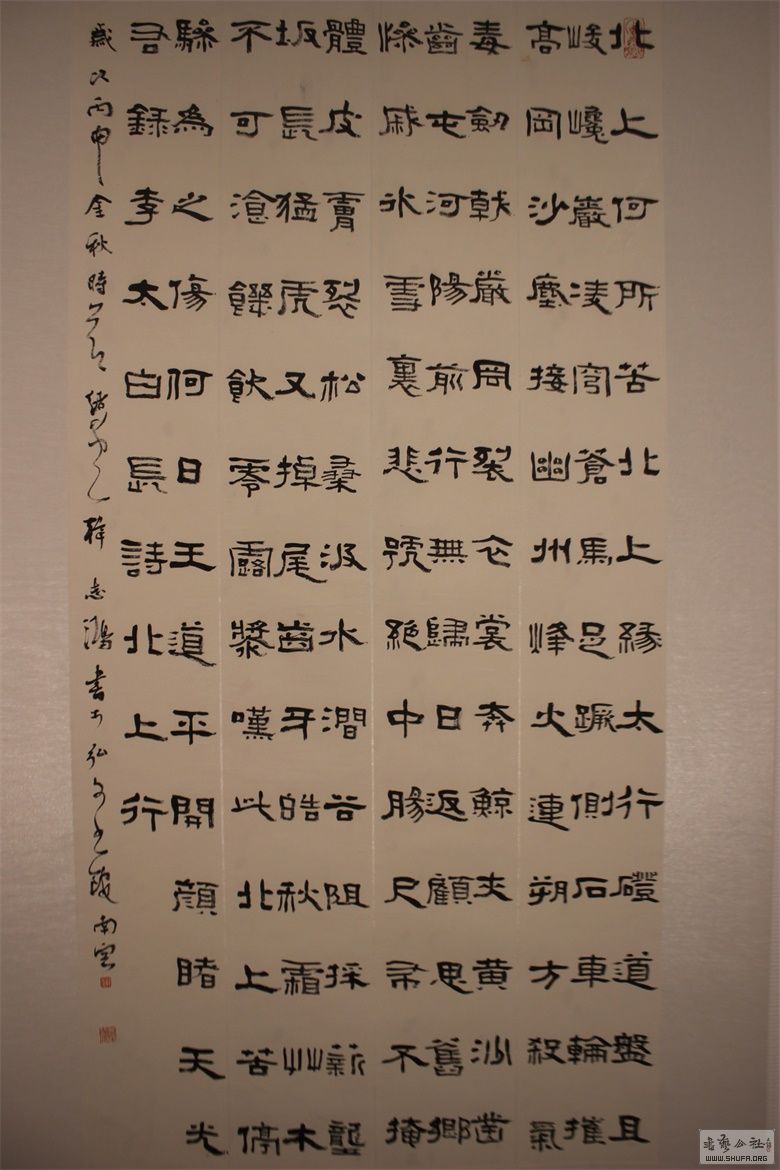 北上何所苦北上緣太行磴道盤且
峻巉巖凌穹蒼馬邑蹶側石車輪摧
高岡沙塵接幽州烽火連朔方殺氣
毒劍戟嚴風裂衣裳奔鯨夾黃沙鑿
齒屯河陽前行無歸日返顧思舊鄉
慘戚冰雪裏悲號絕中腸尺布不掩
體皮膚裂松桑汲水澗谷阻採薪壟
坂長猛虎又掉尾齒牙皓秋霜艸木
不可飡饑飲零露漿嘆此北上苦停
驂為之傷何日王道平開顏睹天光
右錄李太白長詩北上行
歲次丙申金秋時志鴻書於弘文南窗
WWW.SHUFA.ORG